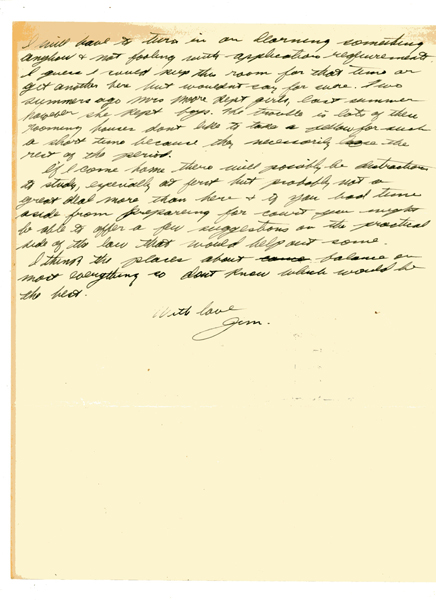 I will have to turn in on learning something
anyhow & not fooling with application requirements
I guess I could keep this room for that time or
get another here but wouldn't say for sure. Two
summers ago Mrs More kept girls, last summer
however she kept boys. The trouble is lots of these
rooming houses don't like to take a fellow for such
a short time because they necessarily lose the
rest of the period.
If I come home there will possibly be distractions
to study, especially at first but probably not a
great deal more than here & if you had time
aside from preparing for court you might
be able to offer a few suggestions on the practical
side of the law that would help out some.
I think the places about balance on
most everything so don't know which would be
the best.
With love
Jim.